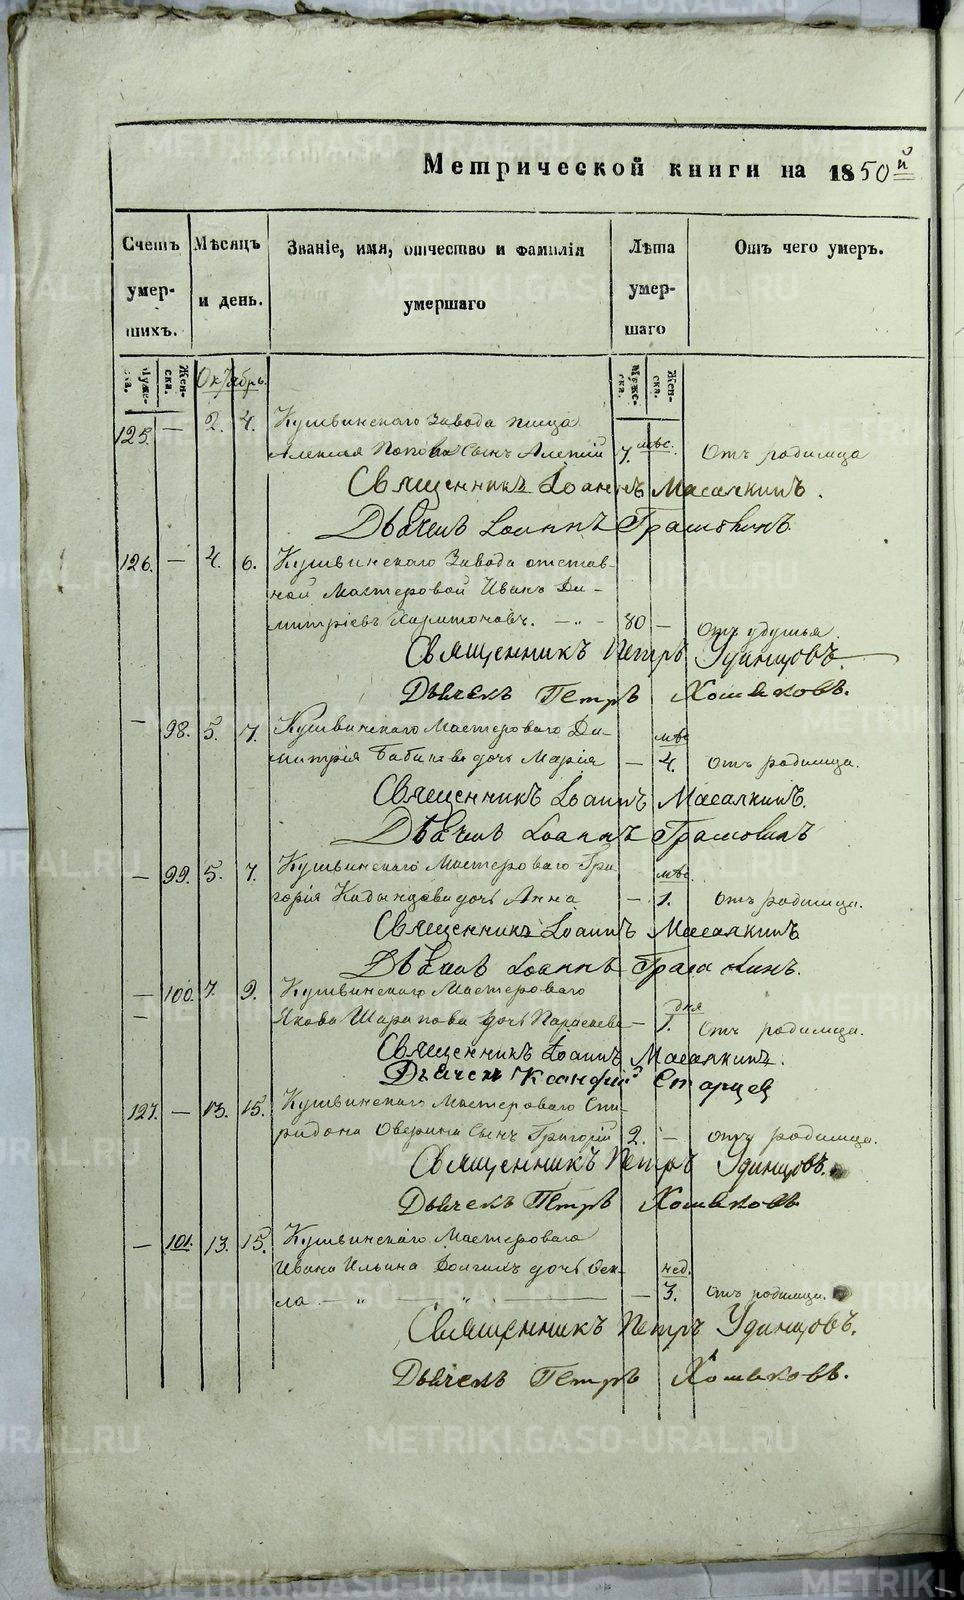 Метрической книги на 1850й
Счетъ умер- шихъ.
Мѣсяцъ и день.
Званіе, имя, отчество и фамилія умершаго
Лѣта умер- шаго
Отъ чего умеръ.
Муже- ска.
Жен- ска.
Октябрь.
Муже- ска.
Жен- ска.
Кушвинскаго Завода писца
125. — 2. 4. Алексѣя Попова сынъ Алексій 7. мѣс. Отъ родимца
Священникъ Іоаннъ Масалкинъ.
Дьячекъ Іоаннъ
126. — 4. 6. Кушвинскаго Завода отстав-
ной Мастеровой Иванъ Ди-
митріевъ Харитоновъ. — „ — 80 — Отъ удушья.
Священникъ Петръ Удинцовъ.
Дьячекъ Петръ Хомяковъ.
— 98. 5. 7. Кушвинскаго Мастероваго Ди- мѣс
митрія дочь Марія — 4. Отъ родимца.
Священникъ Іоаннъ Масалкинъ.
Дьячекъ Іоаннъ
— 99. 5. 7. Кушвинскаго Мастероваго Гри- мѣс.
горія дочь Анна — 1. Отъ родимца.
Священникъ Іоаннъ Масалкинъ
Дьячекъ Іоаннъ
— 100. 7. 9. Кушвинскаго Мастероваго
Якова Шарапова дочь Параскева — 1. дня Отъ родимца.
Священникъ Іоаннъ Масалкинъ.
Дьячекъ Старцев
127. — 13. 15. Кушвинскаго Мастероваго Спи-
ридона Оверина сынъ Григорій 2. — Отъ родимца.
Священникъ Петръ Удинцовъ.
Дьячекъ Петръ Хомяковъ
— 101. 13. 15. Кушвинскаго Мастероваго
Ивана Ильина дочь Фек- нед.
ла — „ „ — 3. Отъ родимца.
Священникъ Петръ Удинцовъ.
Дьячекъ Петръ Хомяковъ.
METRIKI.GASO-URAL.RU